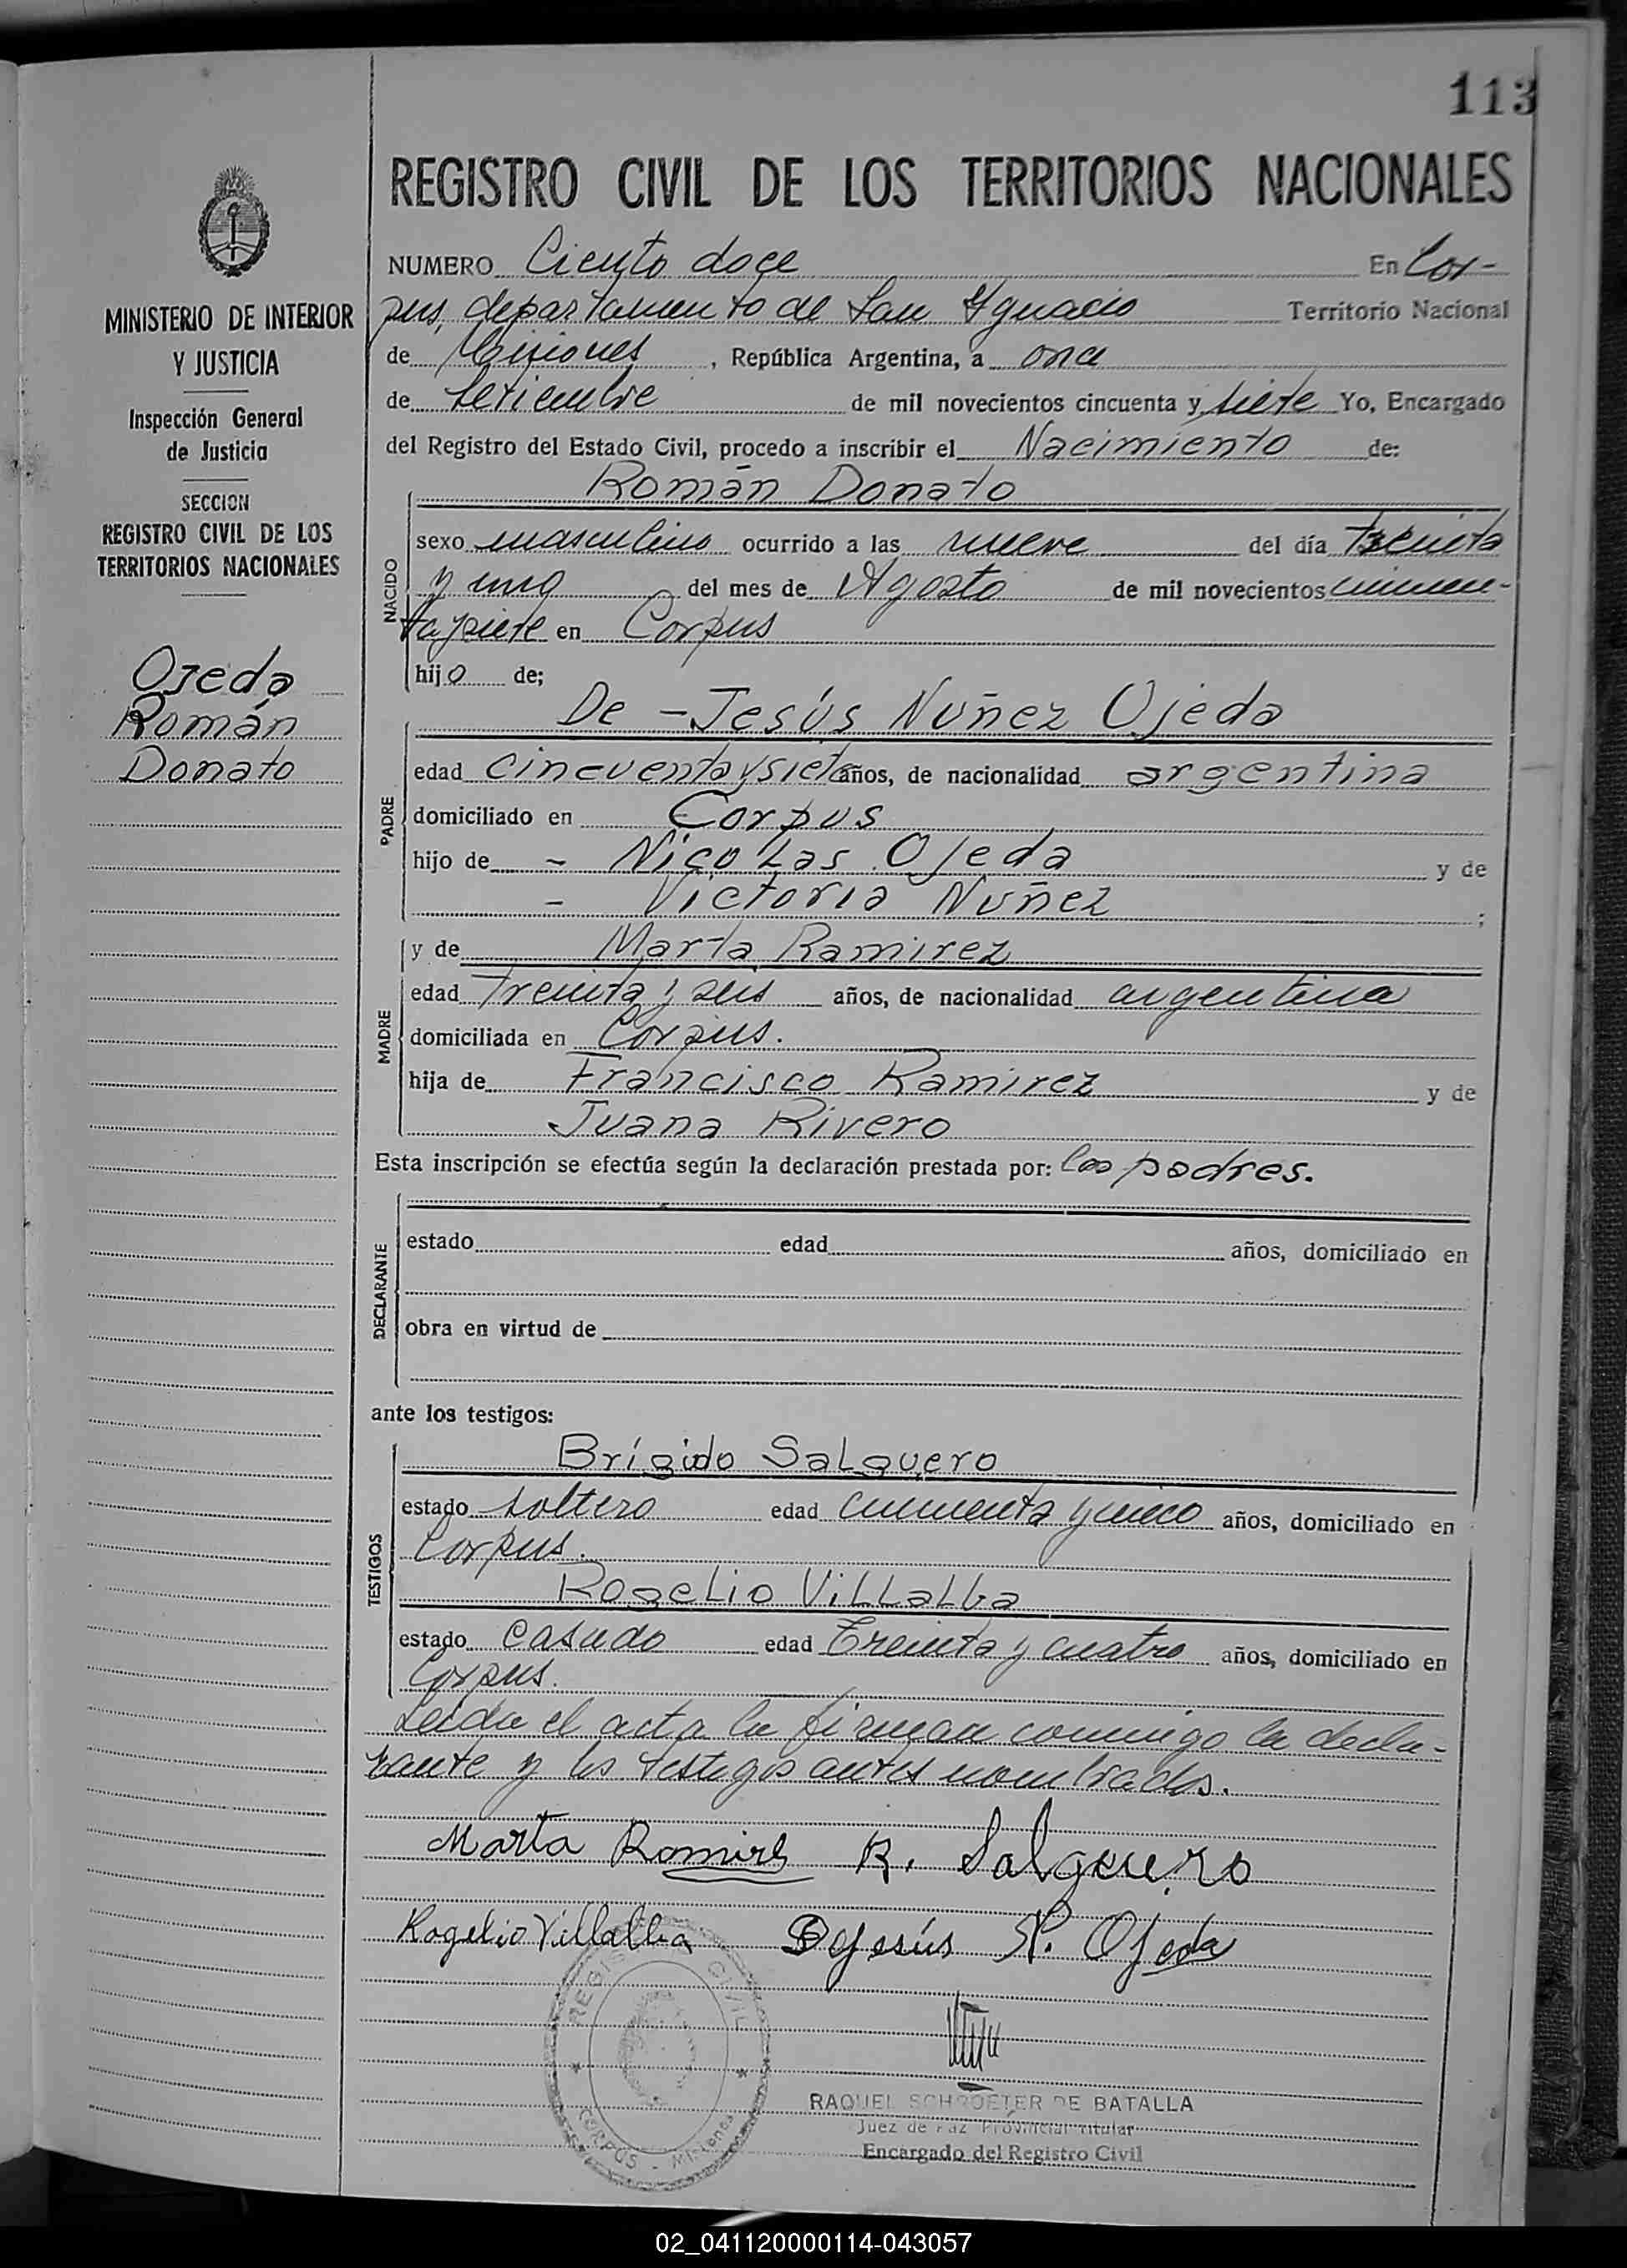 113
REGISTRO CIVIL DE LOS TERRITORIOS NACIONALES
NUMERO Ciento doce En Cor-
pus, departamento de San Ygnacio Territorio Nacional
de Misiones, República Argentina, a once
de Setiembre de mil novecientos cincuenta y siete Yo, Encargado
del Registro del Estado Civil, procedo a inscribir el Nacimiento de:
Román Donato
NACIDO
sexo masculino ocurrido a las nueve del día treinta
y uno del mes de Agosto de mil novecientos cincuen-
ta y siete en Corpus
hijo de;
De - Jesús Nuñez Ojeda
PADRE
edad cincuenta y siete años, de nacionalidad argentina
domiciliado en Corpus
hijo de - Nicolas Ojeda y de
- Victoria Nuñez ;
y de Marta Ramirez
MADRE
edad treinta y seis años, de nacionalidad argentina
domiciliada en Corpus.
hija de Francisco Ramirez y de
Juana Rivero
Esta inscripción se efectúa según la declaración prestada por: los padres.
DECLARANTE
estado edad años, domiciliado en
obra en virtud de
ante los testigos:
Brígido Salguero
TESTIGOS
estado soltero edad cincuenta y cinco años, domiciliado en
Corpus.
Rogelio Villalba
estado casado edad Treinta y cuatro años, domiciliado en
Corpus.
Leida el acta la firman conmigo la decla-
rante y los testigos antes nombrados.
Marta Romires B. Salguero
Rogelio Villalba De Jesús N. Ojeda
REGISTRO CIVIL
CORPUS - Misiones
RAQUEL SCHROETER DE BATALLA
Juez de Paz Provincial Titular
Encargado del Registro Civil
MINISTERIO DE INTERIOR
Y JUSTICIA
Inspección General
de Justicia
SECCION
REGISTRO CIVIL DE LOS
TERRITORIOS NACIONALES
Ojeda
Román
Donato
02_041120000114-043057